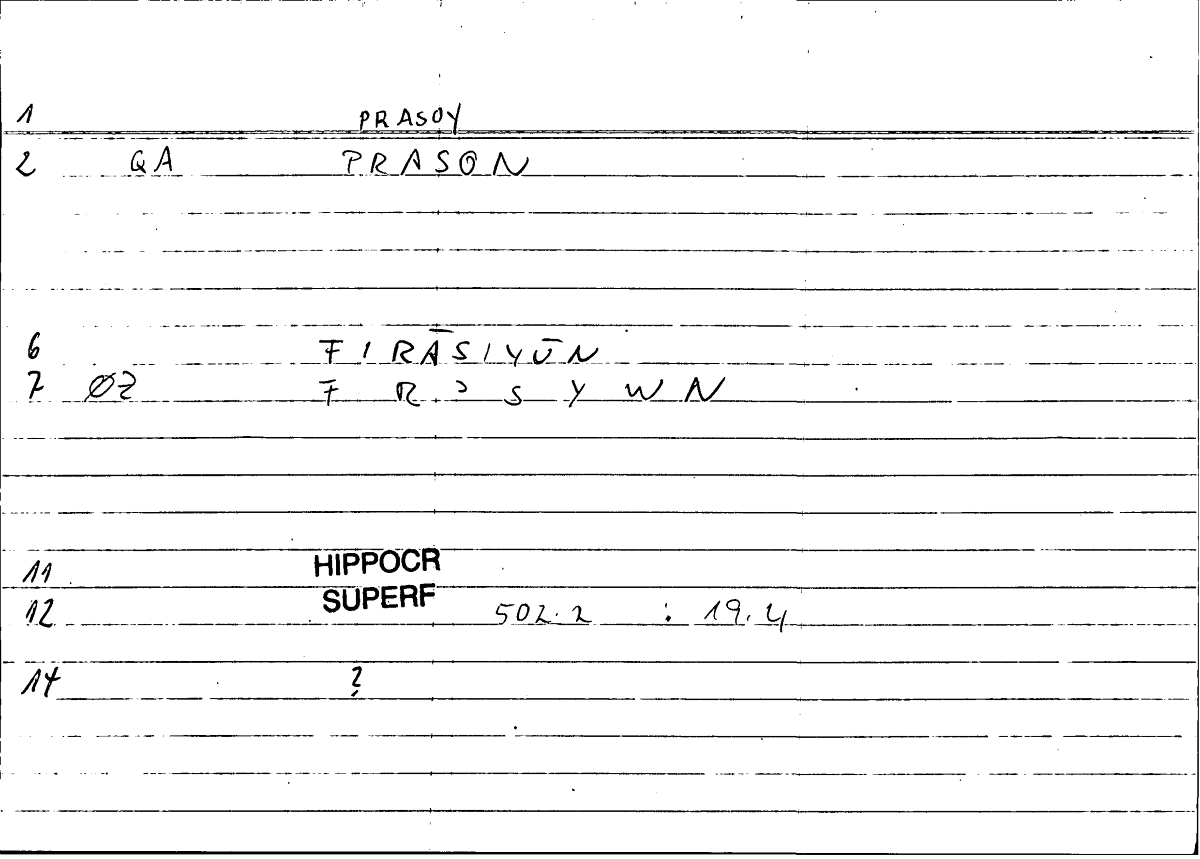 1 PRASOY
2 QA PRASON
6 FIRĀSIYŪN
7 ØZ F R ʾ S Y W N
11 HIPPOCR
12 SUPERF 502.2 : 19.4
14 ?